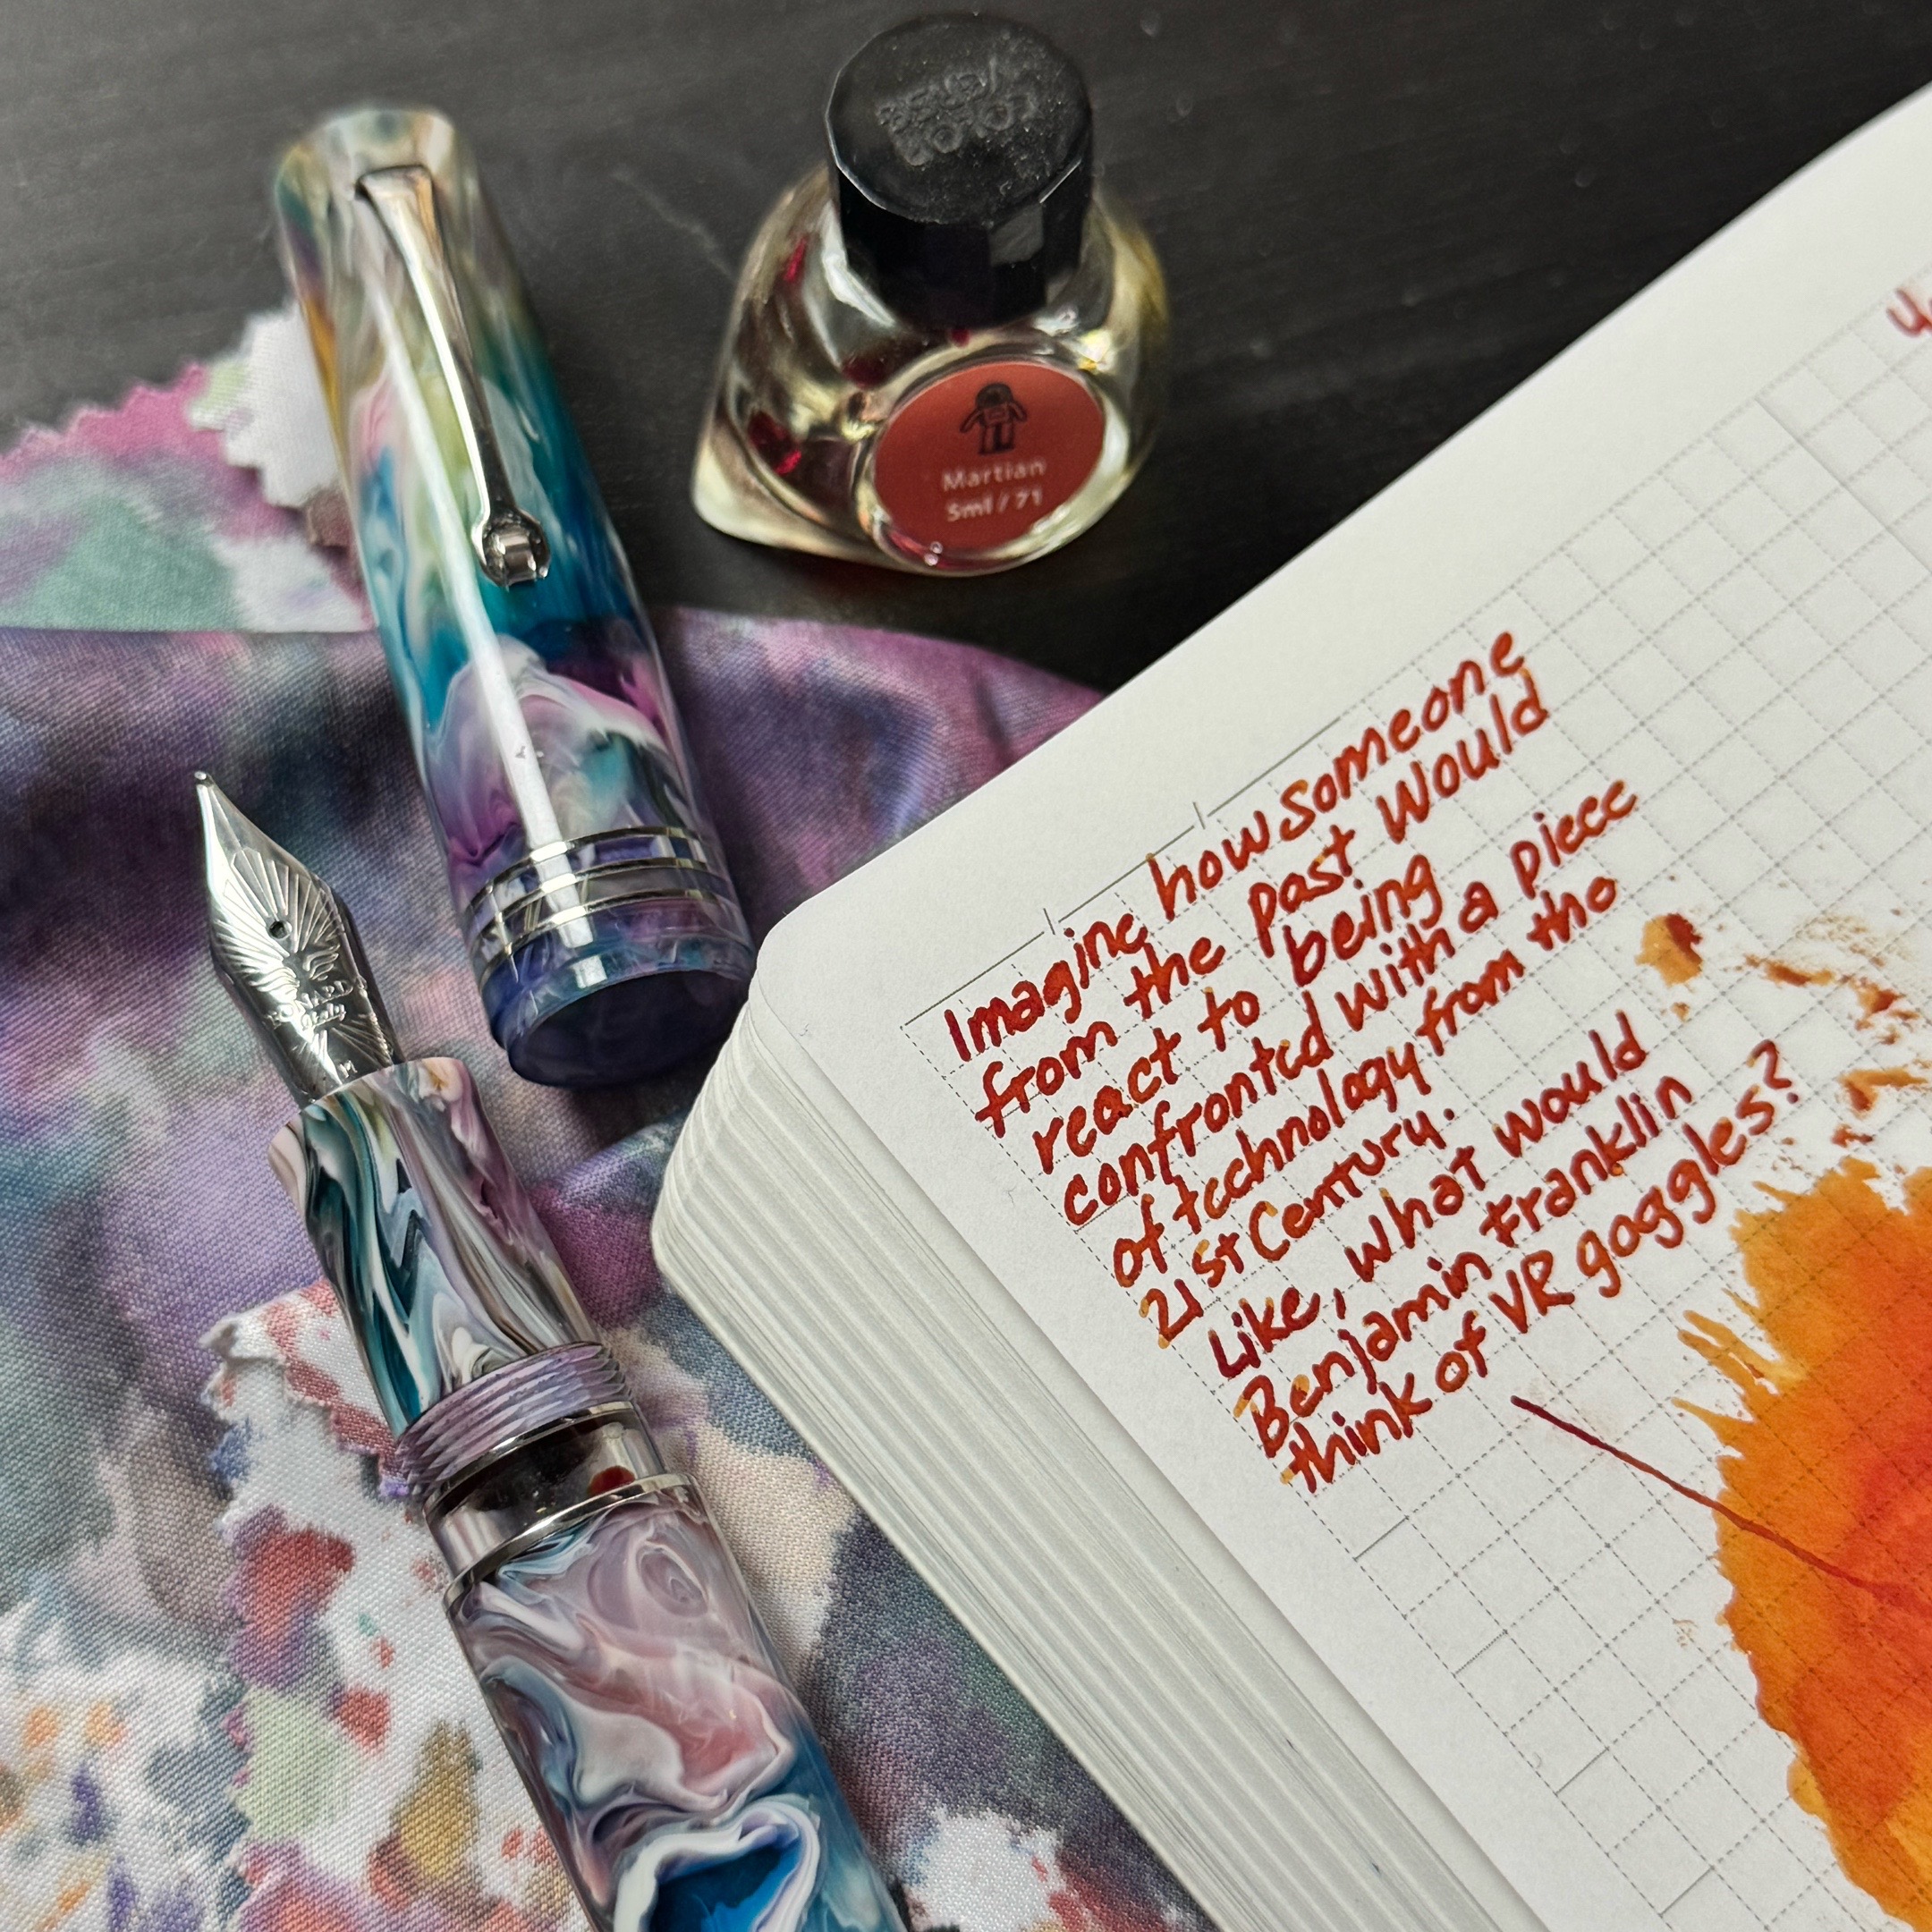 Martian
5ml / 71
M
Imagine how someone
from the past would
react to being
confronted with a piece
of technology from the
21st Century.
Like, what would
Benjamin Franklin
think of VR goggles?